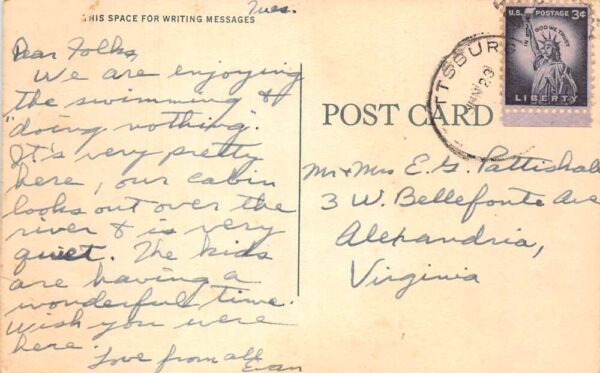 Tues.
THIS SPACE FOR WRITING MESSAGES
Dear Folks,
We are enjoying
the swimming &
"doing nothing".
It's very pretty
here, our cabin
looks out over the
river & is very
quiet. The kids
are having a
wonderful time.
Wish you were
here.
Love from all
Evan
POST CARD
U.S. POSTAGE 3¢
IN GOD WE TRUST
LIBERTY
TTSBURG
Mr & Mrs E. G. Pattishall
3 W. Bellefonte Ave
Alexandria,
Virginia